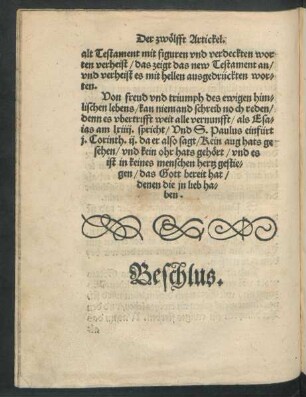 Der zwölfft Artickel.
alt Testament mit figuren vnd verdeckten wor
ten verheist / das zeigt das new Testament an /
vnd verheist es mit hellen ausgedrückten wor-
ten.
Von freud vnd triumph des ewigen him-
lischen lebens / kan niemand schreib no ch reden /
denn es vbertrifft weit alle vernunfft / als Esa-
ias am lxiiij. spricht / Vnd S. Paulus einfürt
j. Corinth. ij. da er also sagt / Kein aug hats ge
sehen / vnd kein ohr hats gehört / vnd es
ist in keines menschen hertz gestie-
gen / das Gott bereit hat /
denen die jn lieb ha-
ben.
Beschlus.